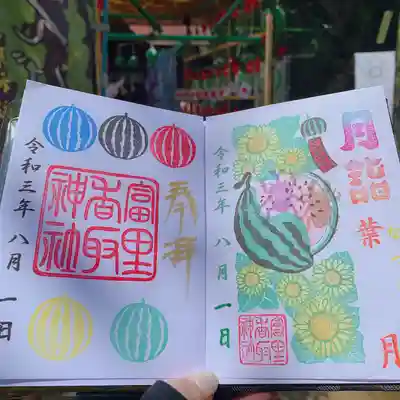 奉拝
富里
香取
神社
令和三年 八月 一日
月詣
葉
月
令和三年 八月 一日
富里
香取
神社